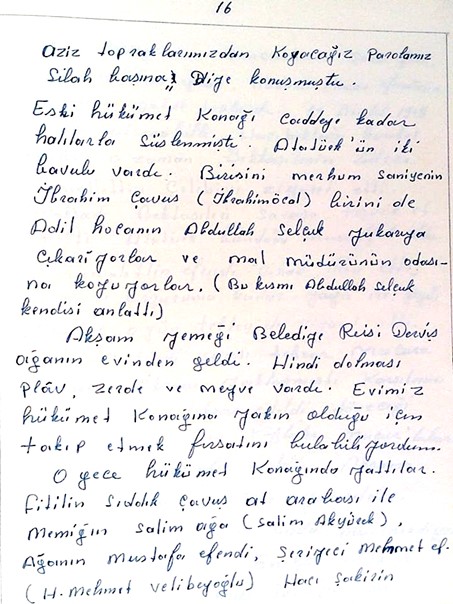 16
aziz topraklarımızdan Koyacağız Parolamız
Silah başına" Diye konuşmuştu.
Eski hükümet Konağı caddeye kadar
halılarla süslenmişti. Atatürk'ün iki
bavulu vardı. Birisini merhum saniyenin
İbrahim Çavuş (İbrahimöcal) birini de
Adil hocanın Abdullah Selçuk yukarıya
çıkarıyorlar ve mal müdürünün odası-
na koyuyorlar. (Bu kısmı Abdullah Selçuk
kendisi anlattı)
Akşam yemeği Belediye Reisi Derviş
ağanın evinden geldi. Hindi dolması
plâv, zerde ve meyve vardı. Evimiz
hükümet Konağına yakın olduğu için
takip etmek fırsatını bulabiliyordum.
O gece hükümet Konağında yattılar.
Fitilin Sıddık Çavuş at arabası ile
Memiğin Salim ağa (Salim Akyürek),
Ağanın Mustafa efendi, Şeriyeci Mehmet ef.
(H. Mehmet Velibeyoğlu) Hacı Şakirin